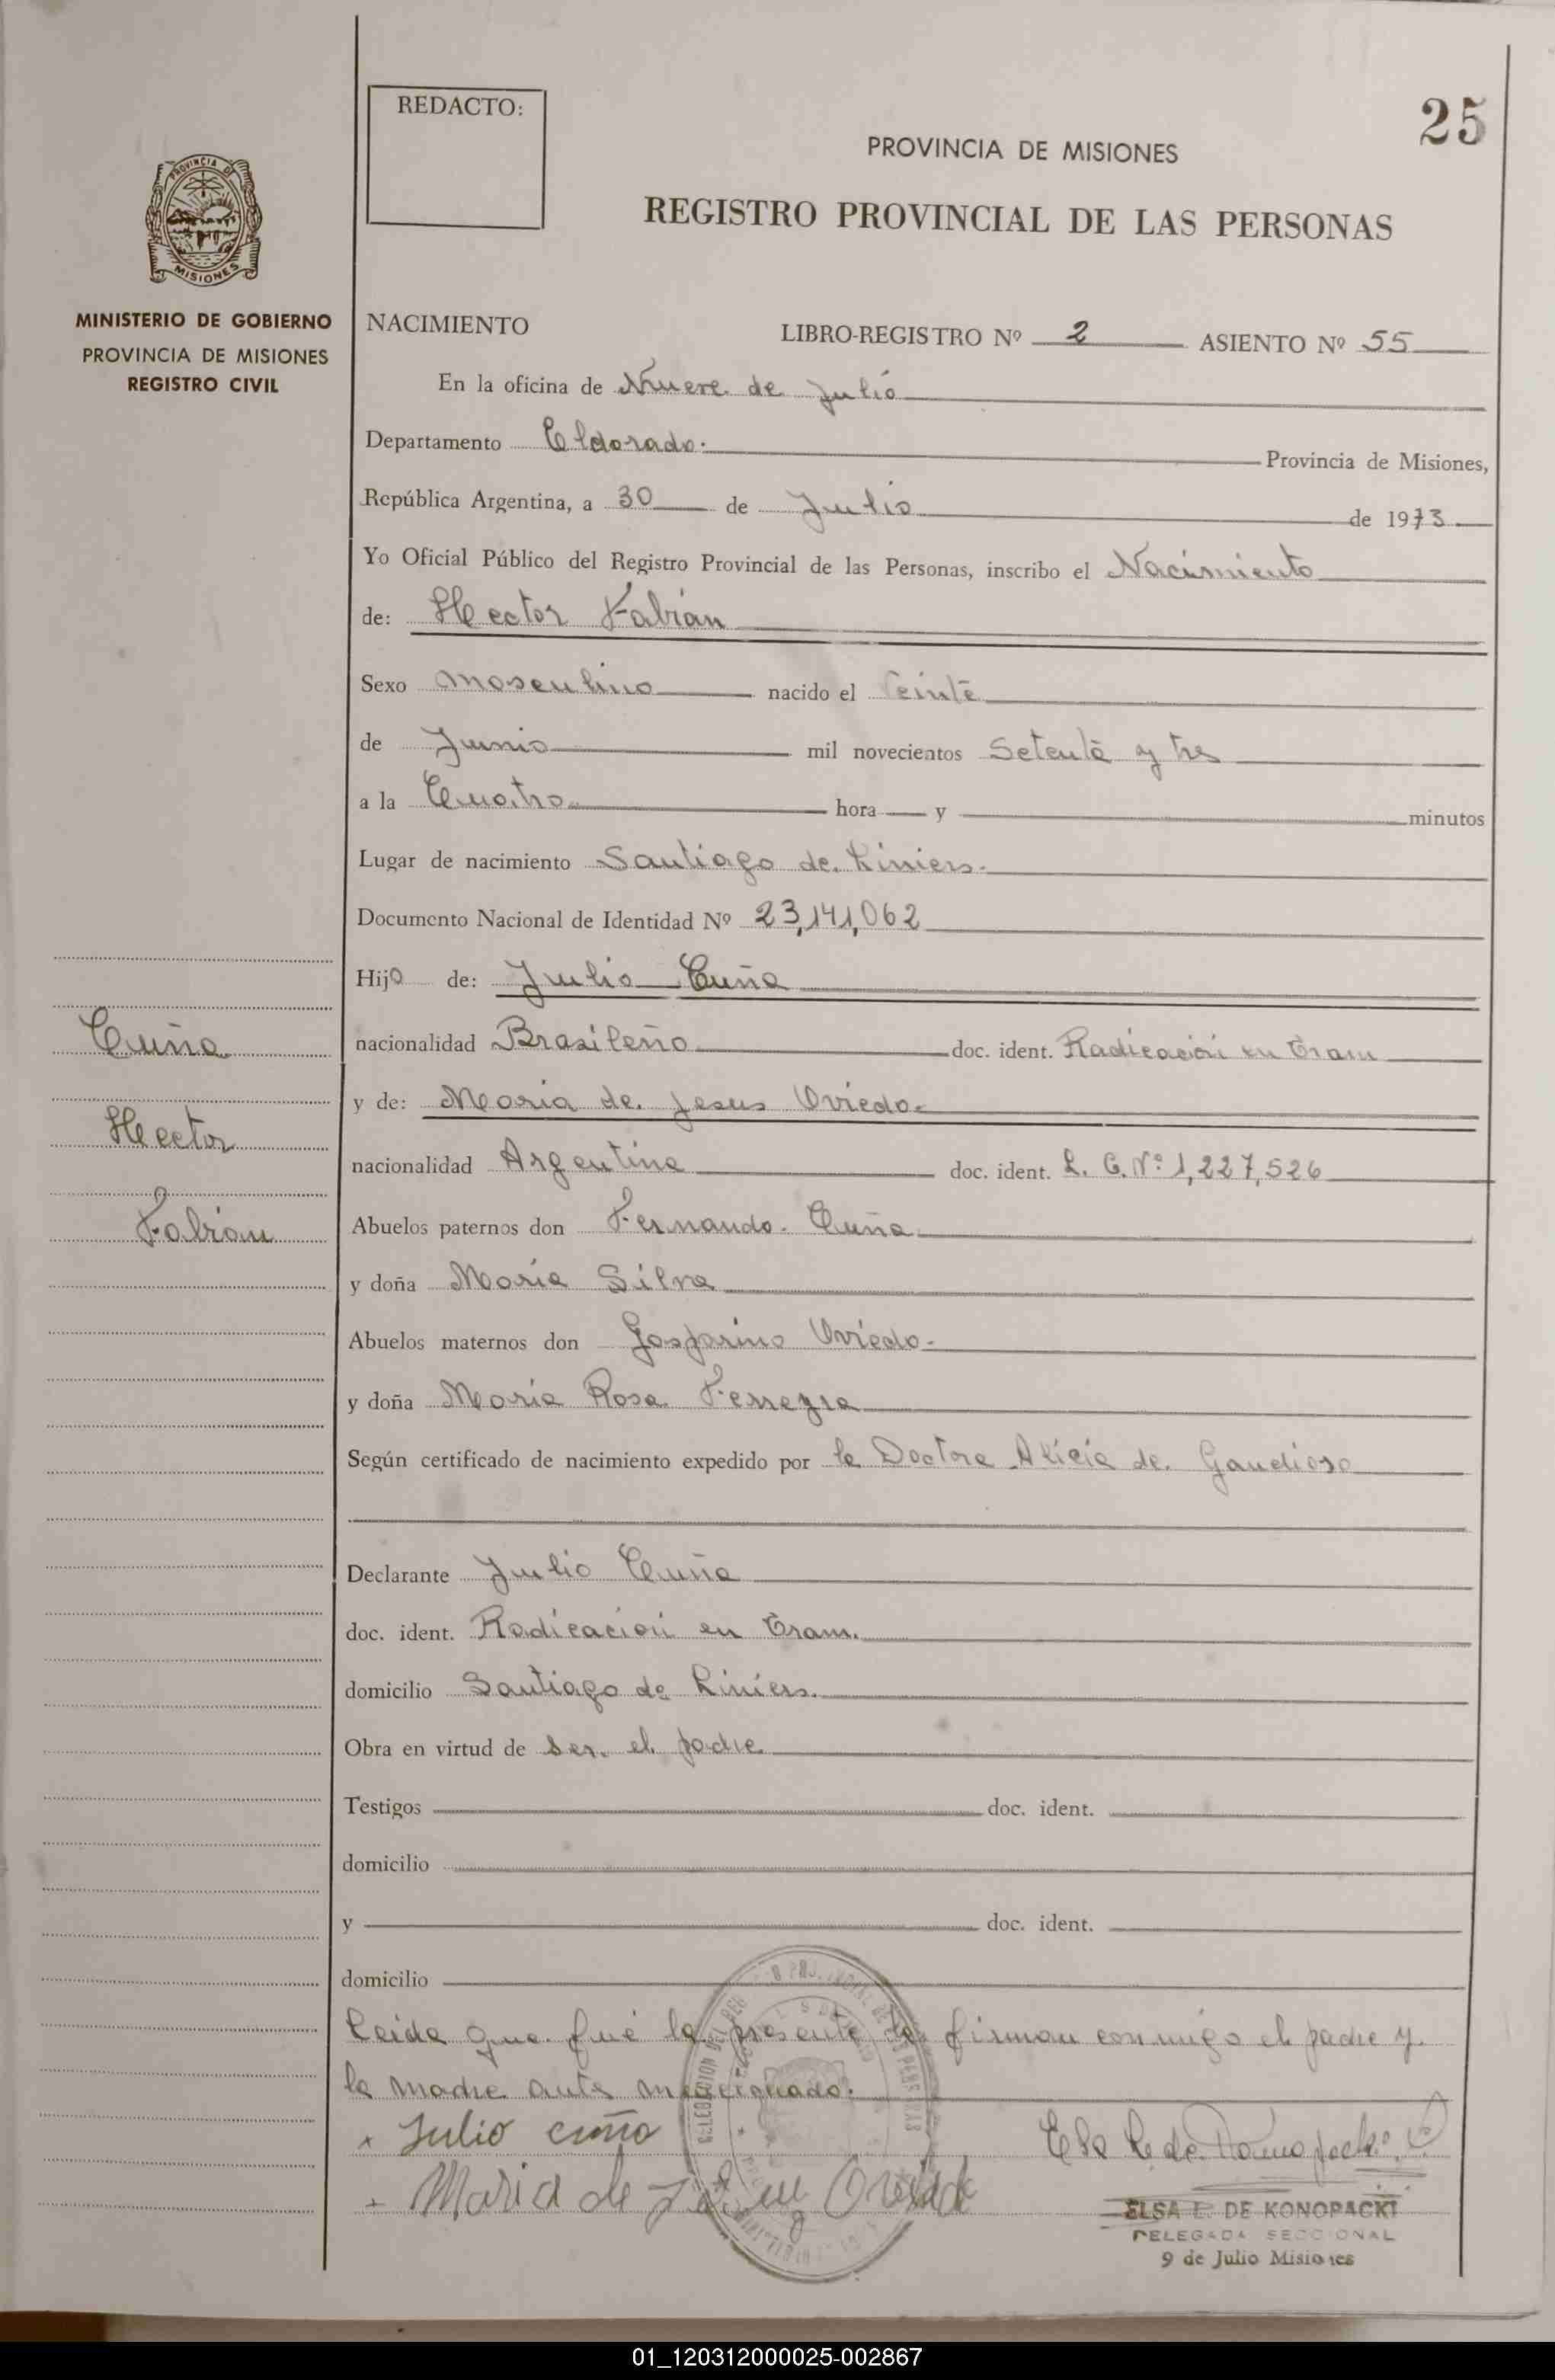 REDACTO:
25
PROVINCIA DE MISIONES
REGISTRO PROVINCIAL DE LAS PERSONAS
PROVINCIA DE
MISIONES
MINISTERIO DE GOBIERNO
PROVINCIA DE MISIONES
REGISTRO CIVIL
NACIMIENTO LIBRO-REGISTRO Nº 2 ASIENTO Nº 55
En la oficina de Nueve de Julio
Departamento Eldorado. Provincia de Misiones,
República Argentina, a 30 de Julio de 1973
Yo Oficial Público del Registro Provincial de las Personas, inscribo el Nacimiento
de: Hector Fabián
Sexo masculino nacido el Veinte
de Junio mil novecientos Setenta y tres
a la Cuatro hora y minutos
Lugar de nacimiento Santiago de Liniers.
Documento Nacional de Identidad Nº 23,141,062
Hijo de: Julio Cuña
nacionalidad Brasileño doc. ident. Radicación en Tram
y de: Maria de Jesus Oviedo.
nacionalidad Argentina doc. ident. L. C. Nº 1,227,526
Abuelos paternos don Fernando Cuña
y doña María Silva
Abuelos maternos don Gasparino Oviedo.
y doña María Rosa Ferreyra
Según certificado de nacimiento expedido por la Doctora Alicia de Gaudioso
Declarante Julio Cuña
doc. ident. Radicación en Tram.
domicilio Santiago de Liniers.
Obra en virtud de ser el padre
Testigos doc. ident.
domicilio
y doc. ident.
domicilio
Leida que fué la presente la firman conmigo el padre y
la madre ante mencionado.
Julio cuña
Maria de Jesus Oviedo
Cuña
Hector
Fabián
ELSA L. DE KONOPACKI
DELEGADA SECCIONAL
9 de Julio Misiones
01_120312000025-002867